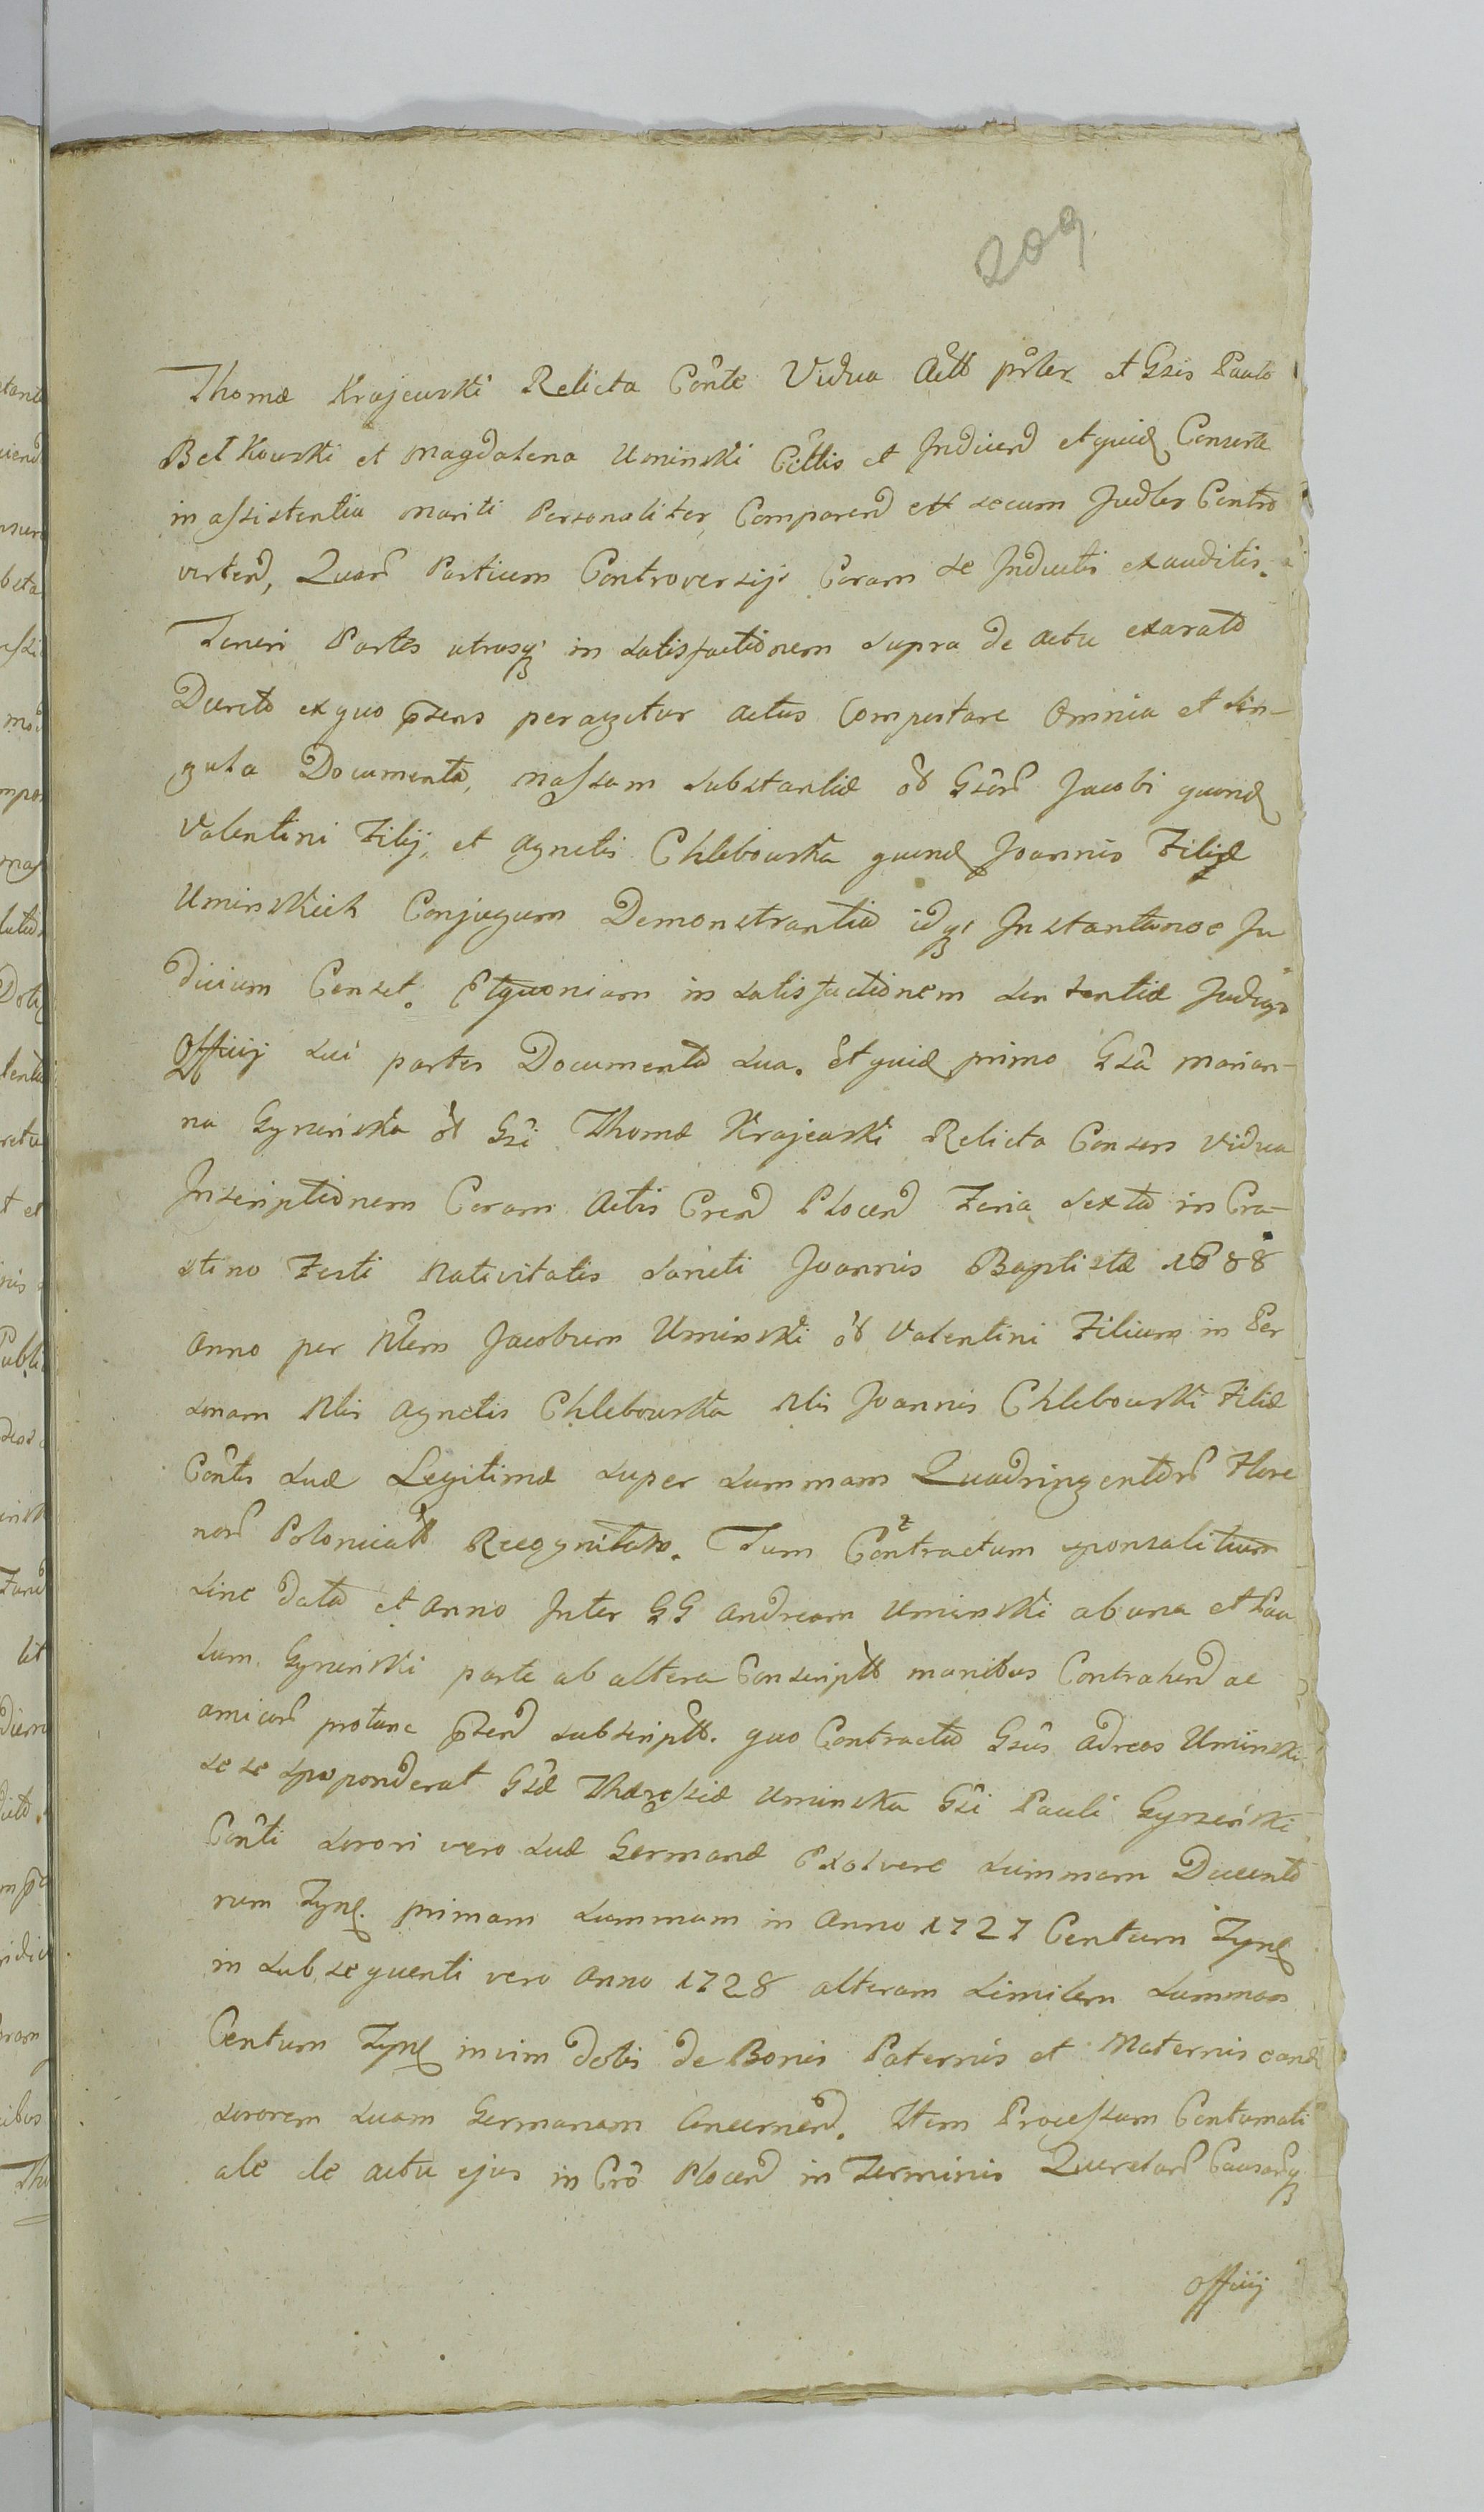 209
Thomæ Krajewski Relicta Conte Vidua Actt prter et Gsis Paulo
Betkowski et Magdalena Uminski Cittis et Judicend et quid Consorte
in assistentia mariti Personaliter Comparend ett secum Judler Contro
vertend, Quar Partium Controversijs Coram se Inductis exauditis.
Teneri Partes utrasq in satisfactionem supra de actu exarato
Decreto ex quo psens peragitur actus Comportare Omnia et sin-
gula Documenta, massam substantiæ od Gsor Jacobi quond
Valentini Filij, et Agnetis Chlebowska quond Joannis Filiæ
Uminskich Conjugum Demonstrantia idq Instantanee Ju
dicium Censet. Et quoniam in satisfactionem sententiæ Judicijs
Officij sui partes Documenta sua. Et quid primo Gsa Marian-
na Gyzinska od Gsi Thomæ Krajewski Relicta Consors vidua
Inscriptionem Coram Actis Crend Plocend Feria sexta in Cra-
stino Festi Nativitatis Sancti Joannis Baptistæ 1688
Anno per Nlem Jacobum Uminski od Valentini Filium in Per
sonam Nlis Agnetis Chlebowska Nlis Joannis Chlebowski Filiæ
Contis suæ Legitimæ super summam Quadringentor Flore
nor Polonicatt Recognitam. Tum Contractum sponsalitium
sine data et Anno Inter GG Andream Uminski ab una et Pau
lum Gyzinski parte ab altera Conscriptt manibus Contrahend ac
amicor protunc psend subscriptt. quo Contractu Gsus Adreas Uminski
se se spoponderat Gsæ Theressiæ Uminska Gsi Pauli Gyzinski
Conti sorori vero suæ Germanæ Exolvere summam Ducento
rum Tynf. primam summam in Anno 1727 Centum Tynf
in subsequenti vero Anno 1728 alteram similem summam
Centum Tynf in vim dotis de Bonis Paternis et Maternis eand
sororem suam Germanam Concernend. Item Processum Contumati
ale de actu ejus in Cro Plocend in Terminis Querelar Causarq
Officij